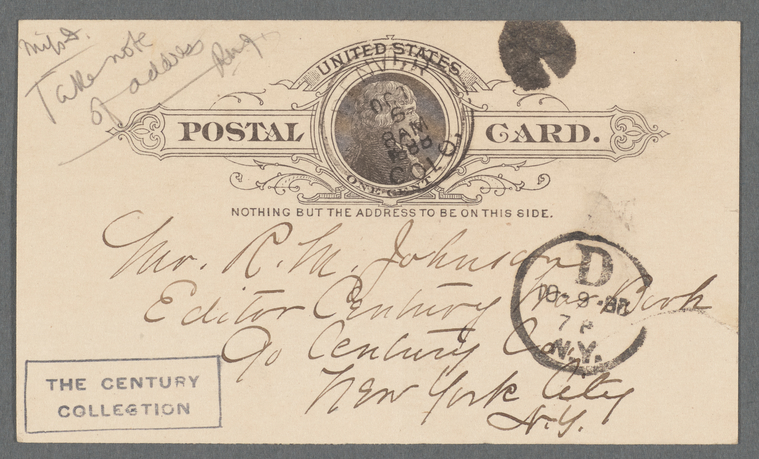 Take note
of address
UNITED STATES
POSTAL CARD.
ONE CENT.
OCT
6
8 AM
1888
COLO.
NOTHING BUT THE ADDRESS TO BE ON THIS SIDE.
Mr. R. M. Johnson
Editor Century War Book
℅ Century Co.
New York City
N.Y.
D
7 P
N.Y.
THE CENTURY
COLLECTION